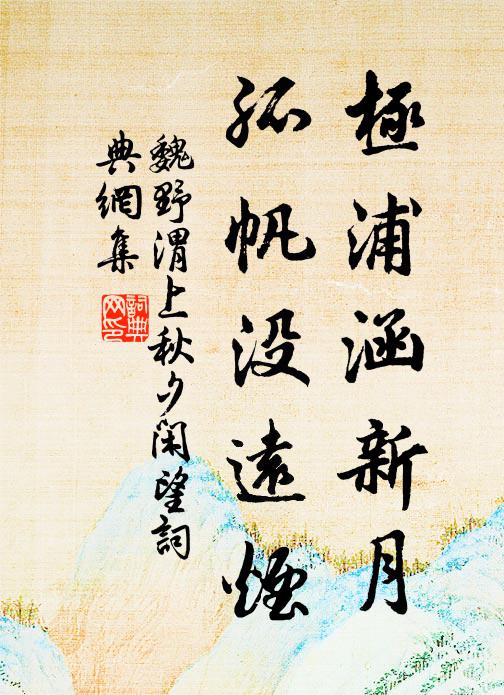 極浦涵新月
孤帆没遠煙
魏野渭上秋夕閑望詞
典網集
詞典
网印